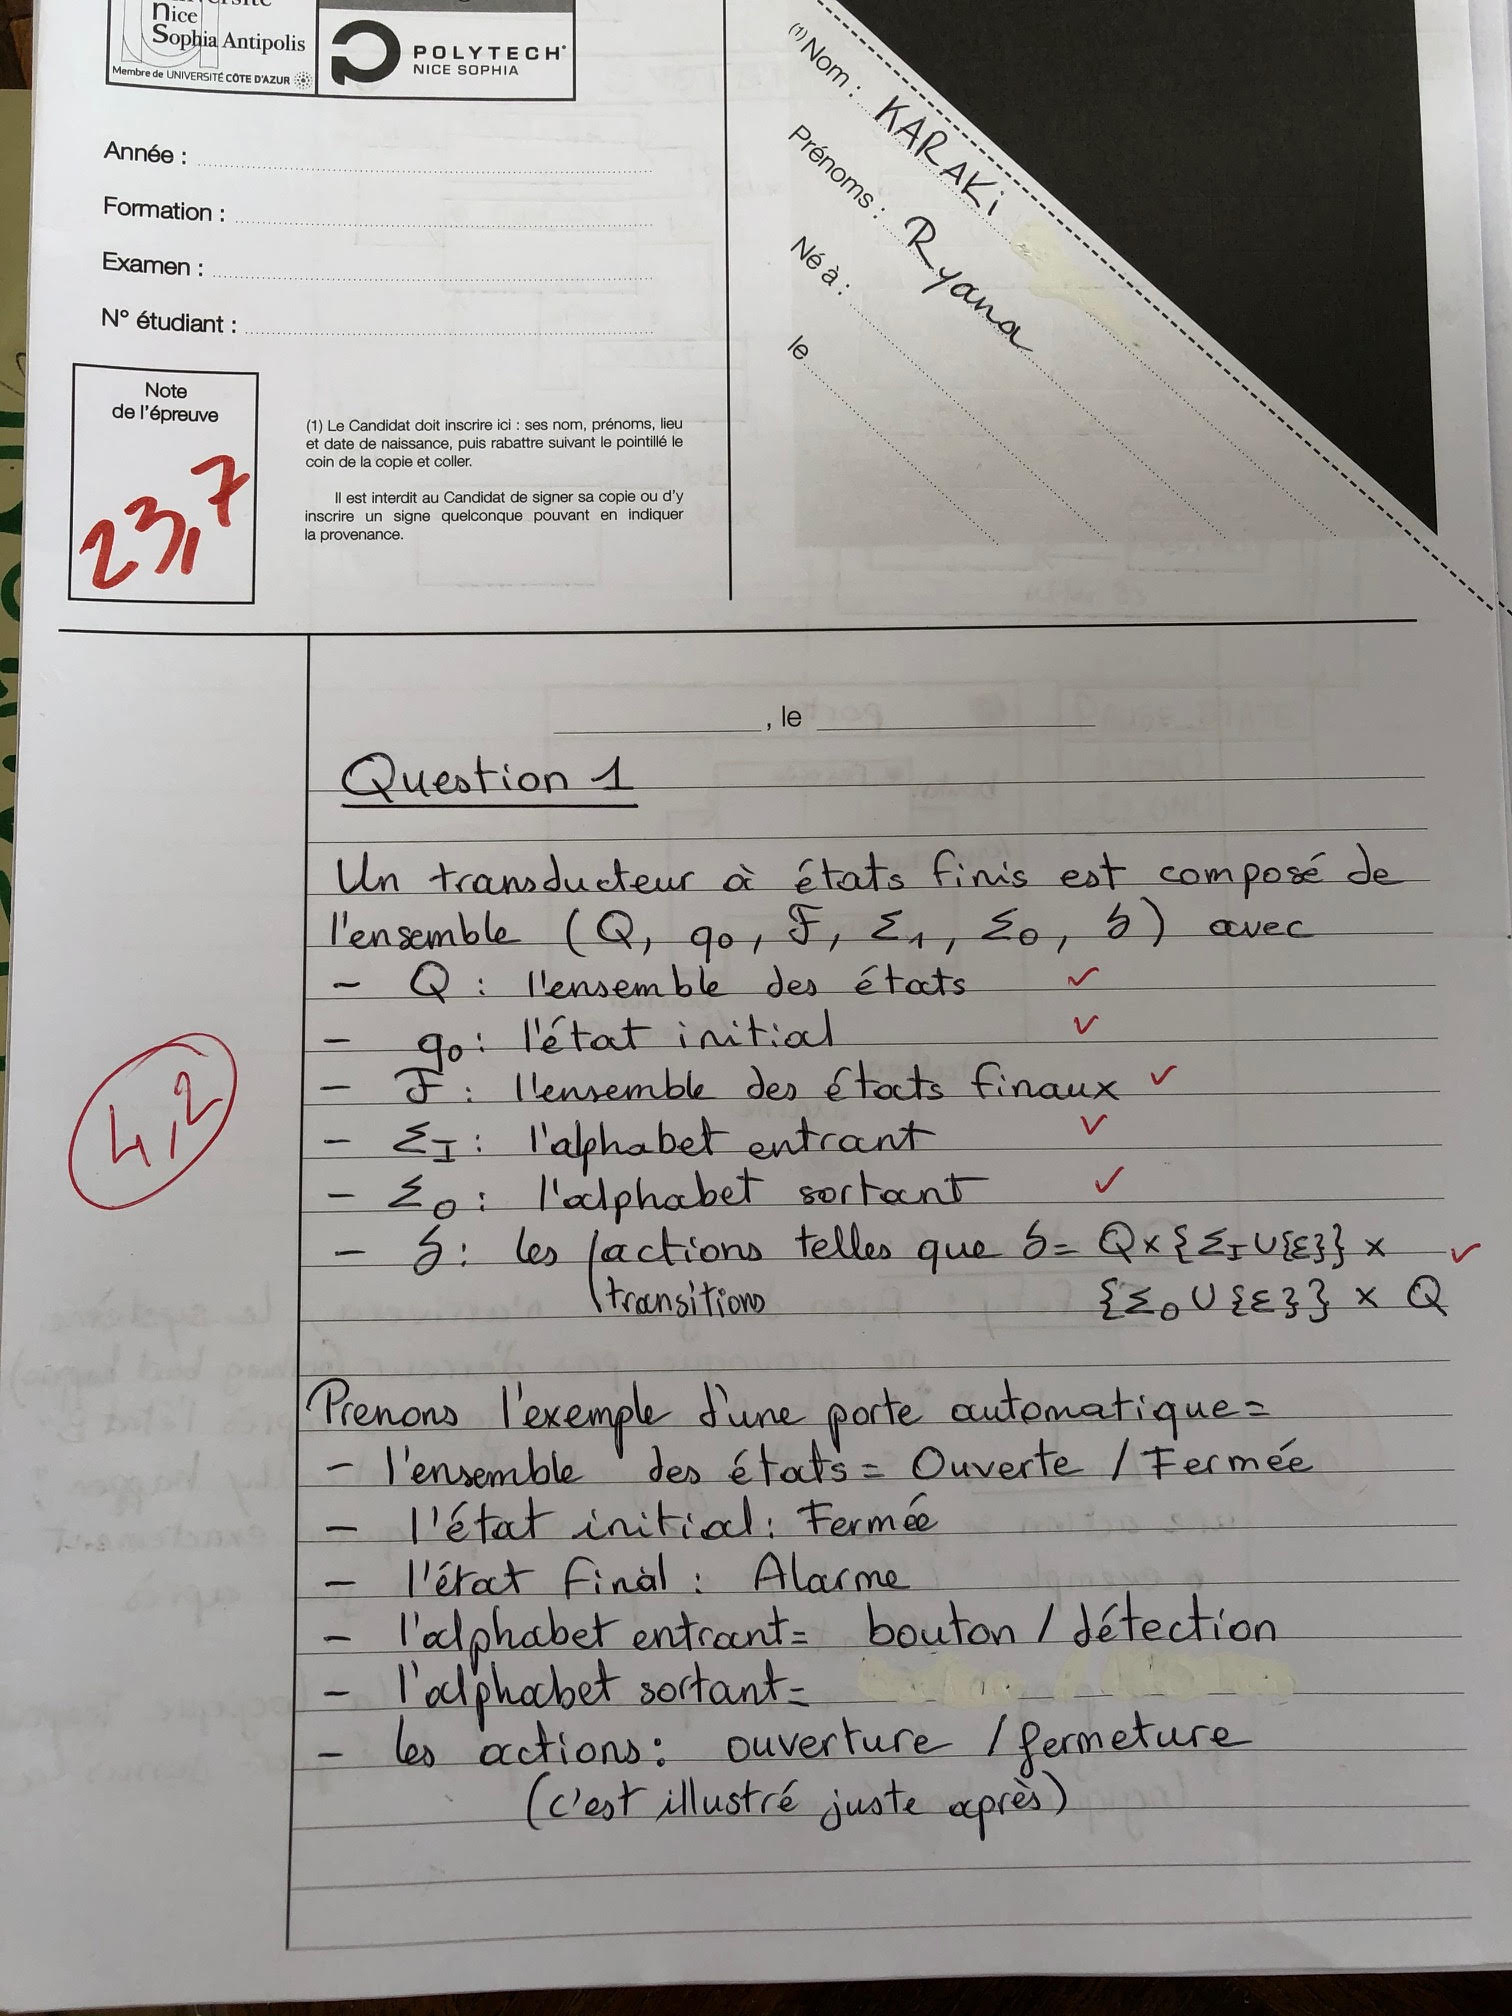 nice
Sophia Antipolis
Membre de UNIVERSITÉ CÔTE D'AZUR
POLYTECH
NICE SOPHIA
(1) Nom : KARAKI
Prénoms : Ryana
Né à :
le
Année :
Formation :
Examen :
N° étudiant :
Note
de l'épreuve
23,7
(1) Le Candidat doit inscrire ici : ses nom, prénoms, lieu
et date de naissance, puis rabattre suivant le pointillé le
coin de la copie et coller.
Il est interdit au Candidat de signer sa copie ou d'y
inscrire un signe quelconque pouvant en indiquer
la provenance.
, le
Question 1
Un transducteur à états finis est composé de
l'ensemble (Q, q0, F, Σ1, Σ0, δ) avec
- Q : l'ensemble des états ✓
- q0 : l'état initial ✓
- F : l'ensemble des états finaux ✓
4,2
- ΣI : l'alphabet entrant ✓
- ΣO : l'alphabet sortant ✓
- δ : les /actions telles que δ = Q x {ΣI ∪{ε}} x ✓
\transitions {ΣO ∪ {ε}} x Q
Prenons l'exemple d'une porte automatique =
- l'ensemble des états = Ouverte / Fermée
- l'état initial : Fermée
- l'état final : Alarme
- l'alphabet entrant = bouton / détection
- l'alphabet sortant =
- les actions : ouverture / fermeture
(c'est illustré juste après)